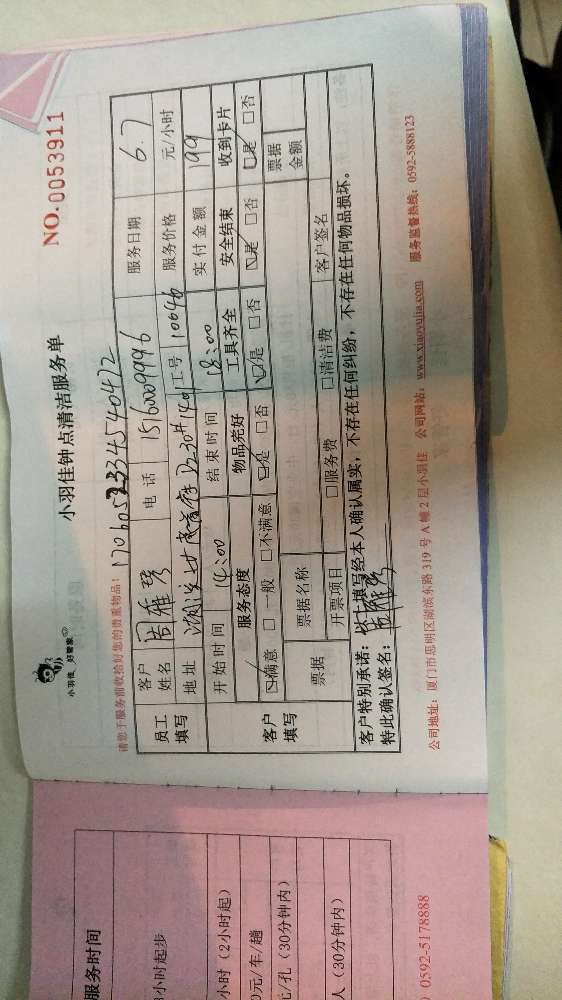 小羽佳 好管家
小羽佳钟点清洁服务单
NO. 0053911
请您于服务前收拾好您的贵重物品:
员工填写
客户姓名 周雅琴 电话 15160009996 服务日期 6.7
地址 工号 10646 服务价格 元/小时
开始时间 14:00 结束时间 18:00 实付金额 199
客户填写
服务态度 物品完好 工具齐全 安全结束 收到卡片
☑满意 □一般 □不满意 ☑是 □否 ☑是 □否 ☑是 □否 ☑是 □否
票据 票据名称 票据金额
开票项目 □服务费 □清洁费 客户签名
客户特别承诺: 以上填写经本人确认属实,不存在任何纠纷,不存在任何物品损坏。
特此确认签名: 周雅琴
公司地址: 厦门市思明区湖滨东路 319 号 A 幢 2 层小羽佳 公司网站: www.xiaoyujia.com 服务监督热线: 0592-5888123
服务时间
小时起步
小时(2小时起)
0元/车/趟
元/孔(30分钟内)
人(30分钟内)
0592-5178888